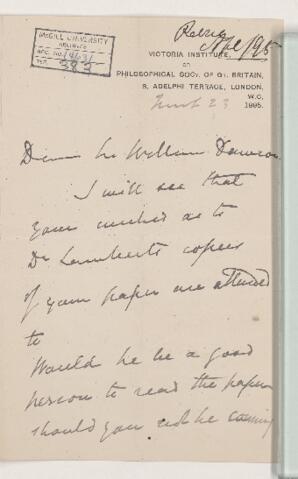 McGILL UNIVERSITY
ARCHIVES
ACC. NO.
REF.
VICTORIA INSTITUTE,
OR
PHILOSOPHICAL SOCY. OF GT. BRITAIN,
8, ADELPHI TERRACE, LONDON,
W.C.
23 1895.
Dear Sir William Dawson
I will see that
your wishes as to
Dr Lambert's copies
of your paper are attended
to
Would he be a good
person to read the paper
should you not be coming